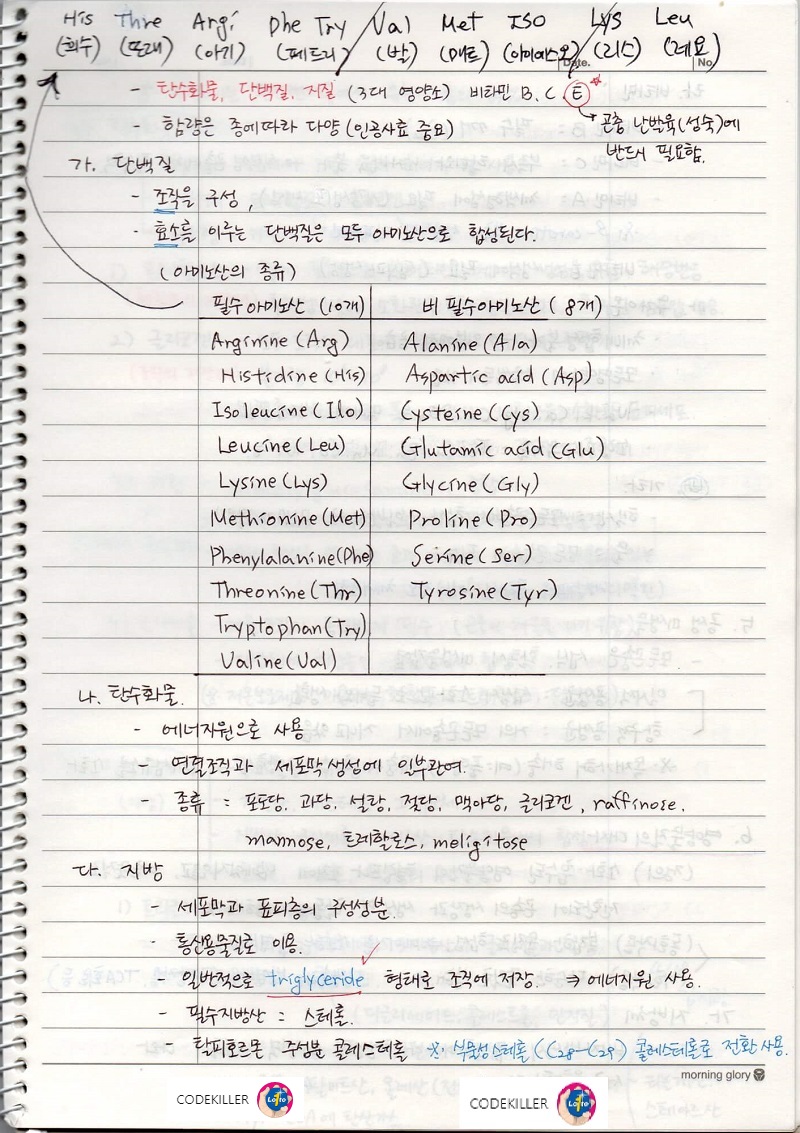 His Thre Argi Phe Try Val Met ISO Lys Leu
(희수) (뜨레) (아기) (페트리) (발) (매트) (아이에스오) (리스) (레요)
Date. No.
- 탄수화물, 단백질, 지질 (3대 영양소) 비타민 B, C, E *
- 함량은 종에따라 다양 (인공사료 중요) → 곤충 난발육(성숙)에
반드시 필요함.
가. 단백질
- 조직을 구성,
- 효소를 이루는 단백질은 모두 아미노산으로 합성된다.
(아미노산의 종류)
필수아미노산 (10개) 비 필수아미노산 (8개)
Arginine (Arg) Alanine (Ala)
Histidine (His) Aspartic acid (Asp)
Isoleucine (Ilo) Cysteine (Cys)
Leucine (Leu) Glutamic acid (Glu)
Lysine (Lys) Glycine (Gly)
Methionine (Met) Proline (Pro)
Phenylalanine (Phe) Serine (Ser)
Threonine (Thr) Tyrosine (Tyr)
Tryptophan (Try)
Valine (Val)
나. 탄수화물.
- 에너지원으로 사용
- 연결조직과 세포막 생성에 일부관여.
- 종류 : 포도당. 과당. 설탕, 젖당, 맥아당, 글리코겐, raffinose,
mannose, 트레할로스, meligitose
다. 지방
- 세포막과 표피층의 구성성분.
- 통신용물질로 이용.
- 일반적으로 triglyceride 형태로 조직에 저장. ⇒ 에너지원 사용.
- 필수지방산 = 스테롤.
- 탈피호르몬 구성분 콜레스테롤 ※. 식물성스테롤 (C28-C29) 콜레스테롤로 전환사용.
morning glory
CODEKILLER Lotto CODEKILLER Lotto